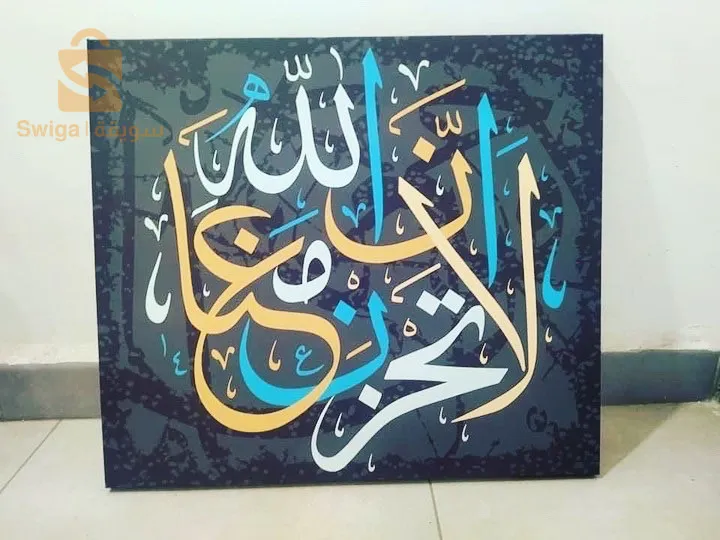 Swiga | سويقة
لا تحزن إنّ الله معنا